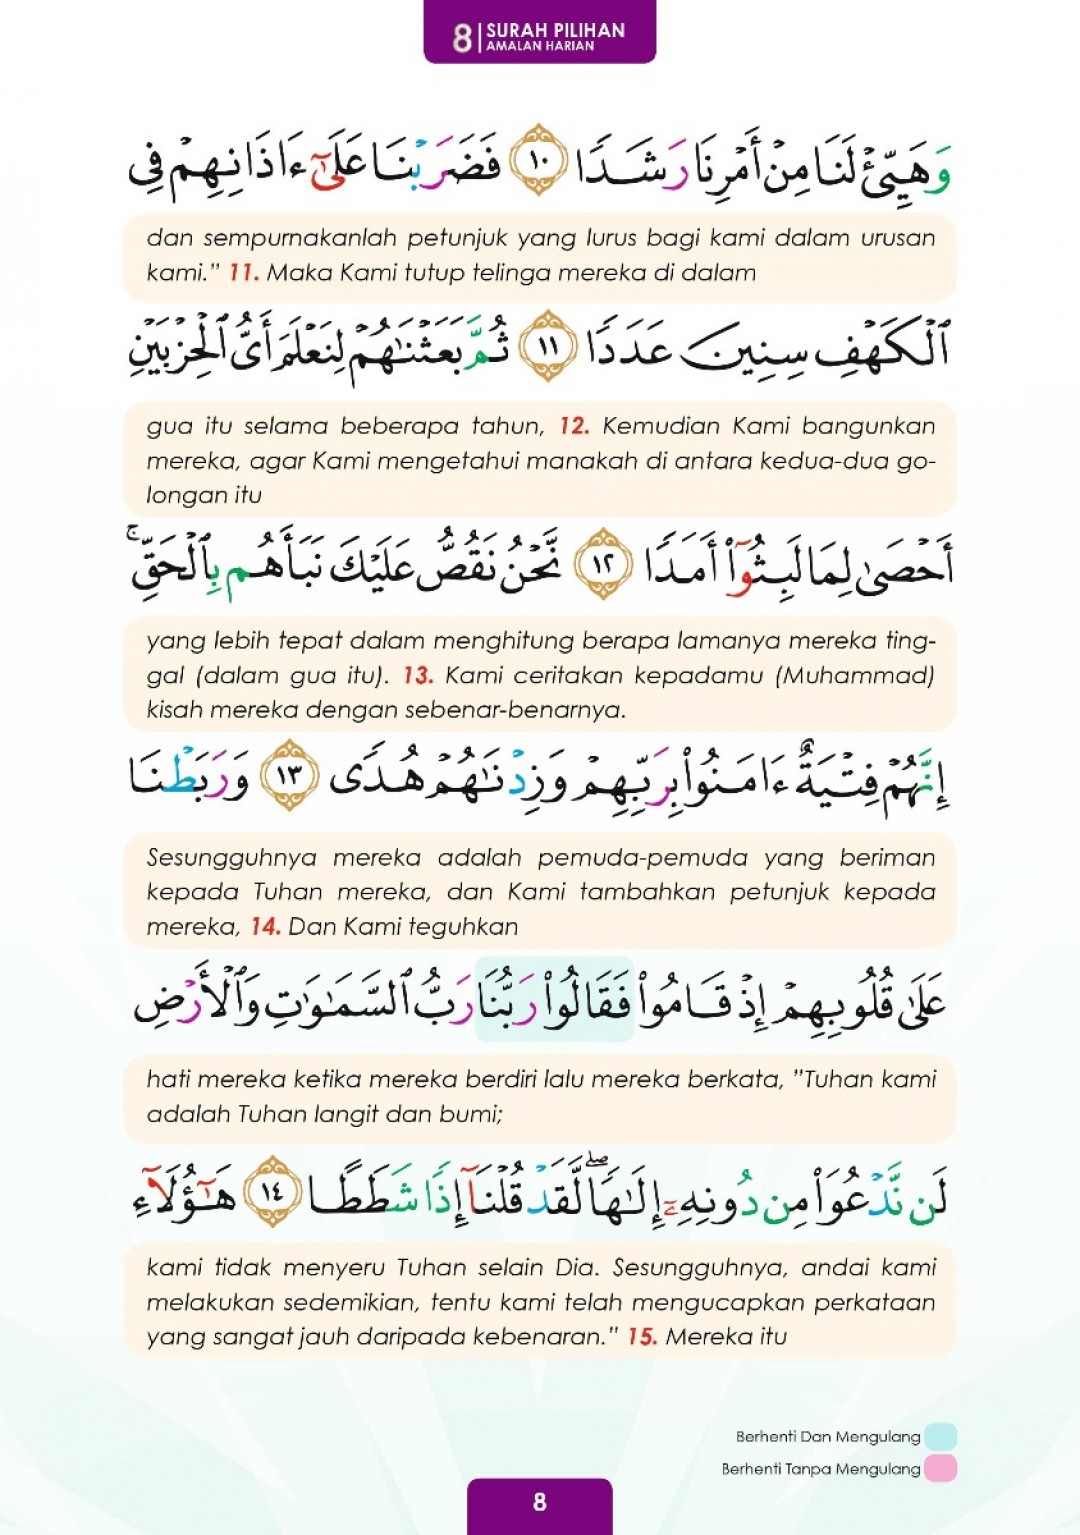 8 | SURAH PILIHAN
AMALAN HARIAN
وَهَيِّئْ لَنَا مِنْ أَمْرِنَا رَشَدًا ١٠ فَضَرَبْنَا عَلَىٰٓ ءَاذَانِهِمْ فِى
dan sempurnakanlah petunjuk yang lurus bagi kami dalam urusan
kami.” 11. Maka Kami tutup telinga mereka di dalam
ٱلْكَهْفِ سِنِينَ عَدَدًا ١١ ثُمَّ بَعَثْنَٰهُمْ لِنَعْلَمَ أَىُّ ٱلْحِزْبَيْنِ
gua itu selama beberapa tahun, 12. Kemudian Kami bangunkan
mereka, agar Kami mengetahui manakah di antara kedua-dua go-
longan itu
أَحْصَىٰ لِمَا لَبِثُوٓا۟ أَمَدًا ١٢ نَّحْنُ نَقُصُّ عَلَيْكَ نَبَأَهُم بِٱلْحَقِّ ۚ
yang lebih tepat dalam menghitung berapa lamanya mereka ting-
gal (dalam gua itu). 13. Kami ceritakan kepadamu (Muhammad)
kisah mereka dengan sebenar-benarnya.
إِنَّهُمْ فِتْيَةٌ ءَامَنُوا۟ بِرَبِّهِمْ وَزِدْنَٰهُمْ هُدًى ١٣ وَرَبَطْنَا
Sesungguhnya mereka adalah pemuda-pemuda yang beriman
kepada Tuhan mereka, dan Kami tambahkan petunjuk kepada
mereka, 14. Dan Kami teguhkan
عَلَىٰ قُلُوبِهِمْ إِذْ قَامُوا۟ فَقَالُوا۟ رَبُّنَا رَبُّ ٱلسَّمَٰوَٰتِ وَٱلْأَرْضِ
hati mereka ketika mereka berdiri lalu mereka berkata, ”Tuhan kami
adalah Tuhan langit dan bumi;
لَن نَّدْعُوَا۟ مِن دُونِهِۦٓ إِلَٰهًا ۖ لَّقَدْ قُلْنَآ إِذًا شَطَطًا ١٤ هَٰٓؤُلَآءِ
kami tidak menyeru Tuhan selain Dia. Sesungguhnya, andai kami
melakukan sedemikian, tentu kami telah mengucapkan perkataan
yang sangat jauh daripada kebenaran.” 15. Mereka itu
Berhenti Dan Mengulang
Berhenti Tanpa Mengulang
8